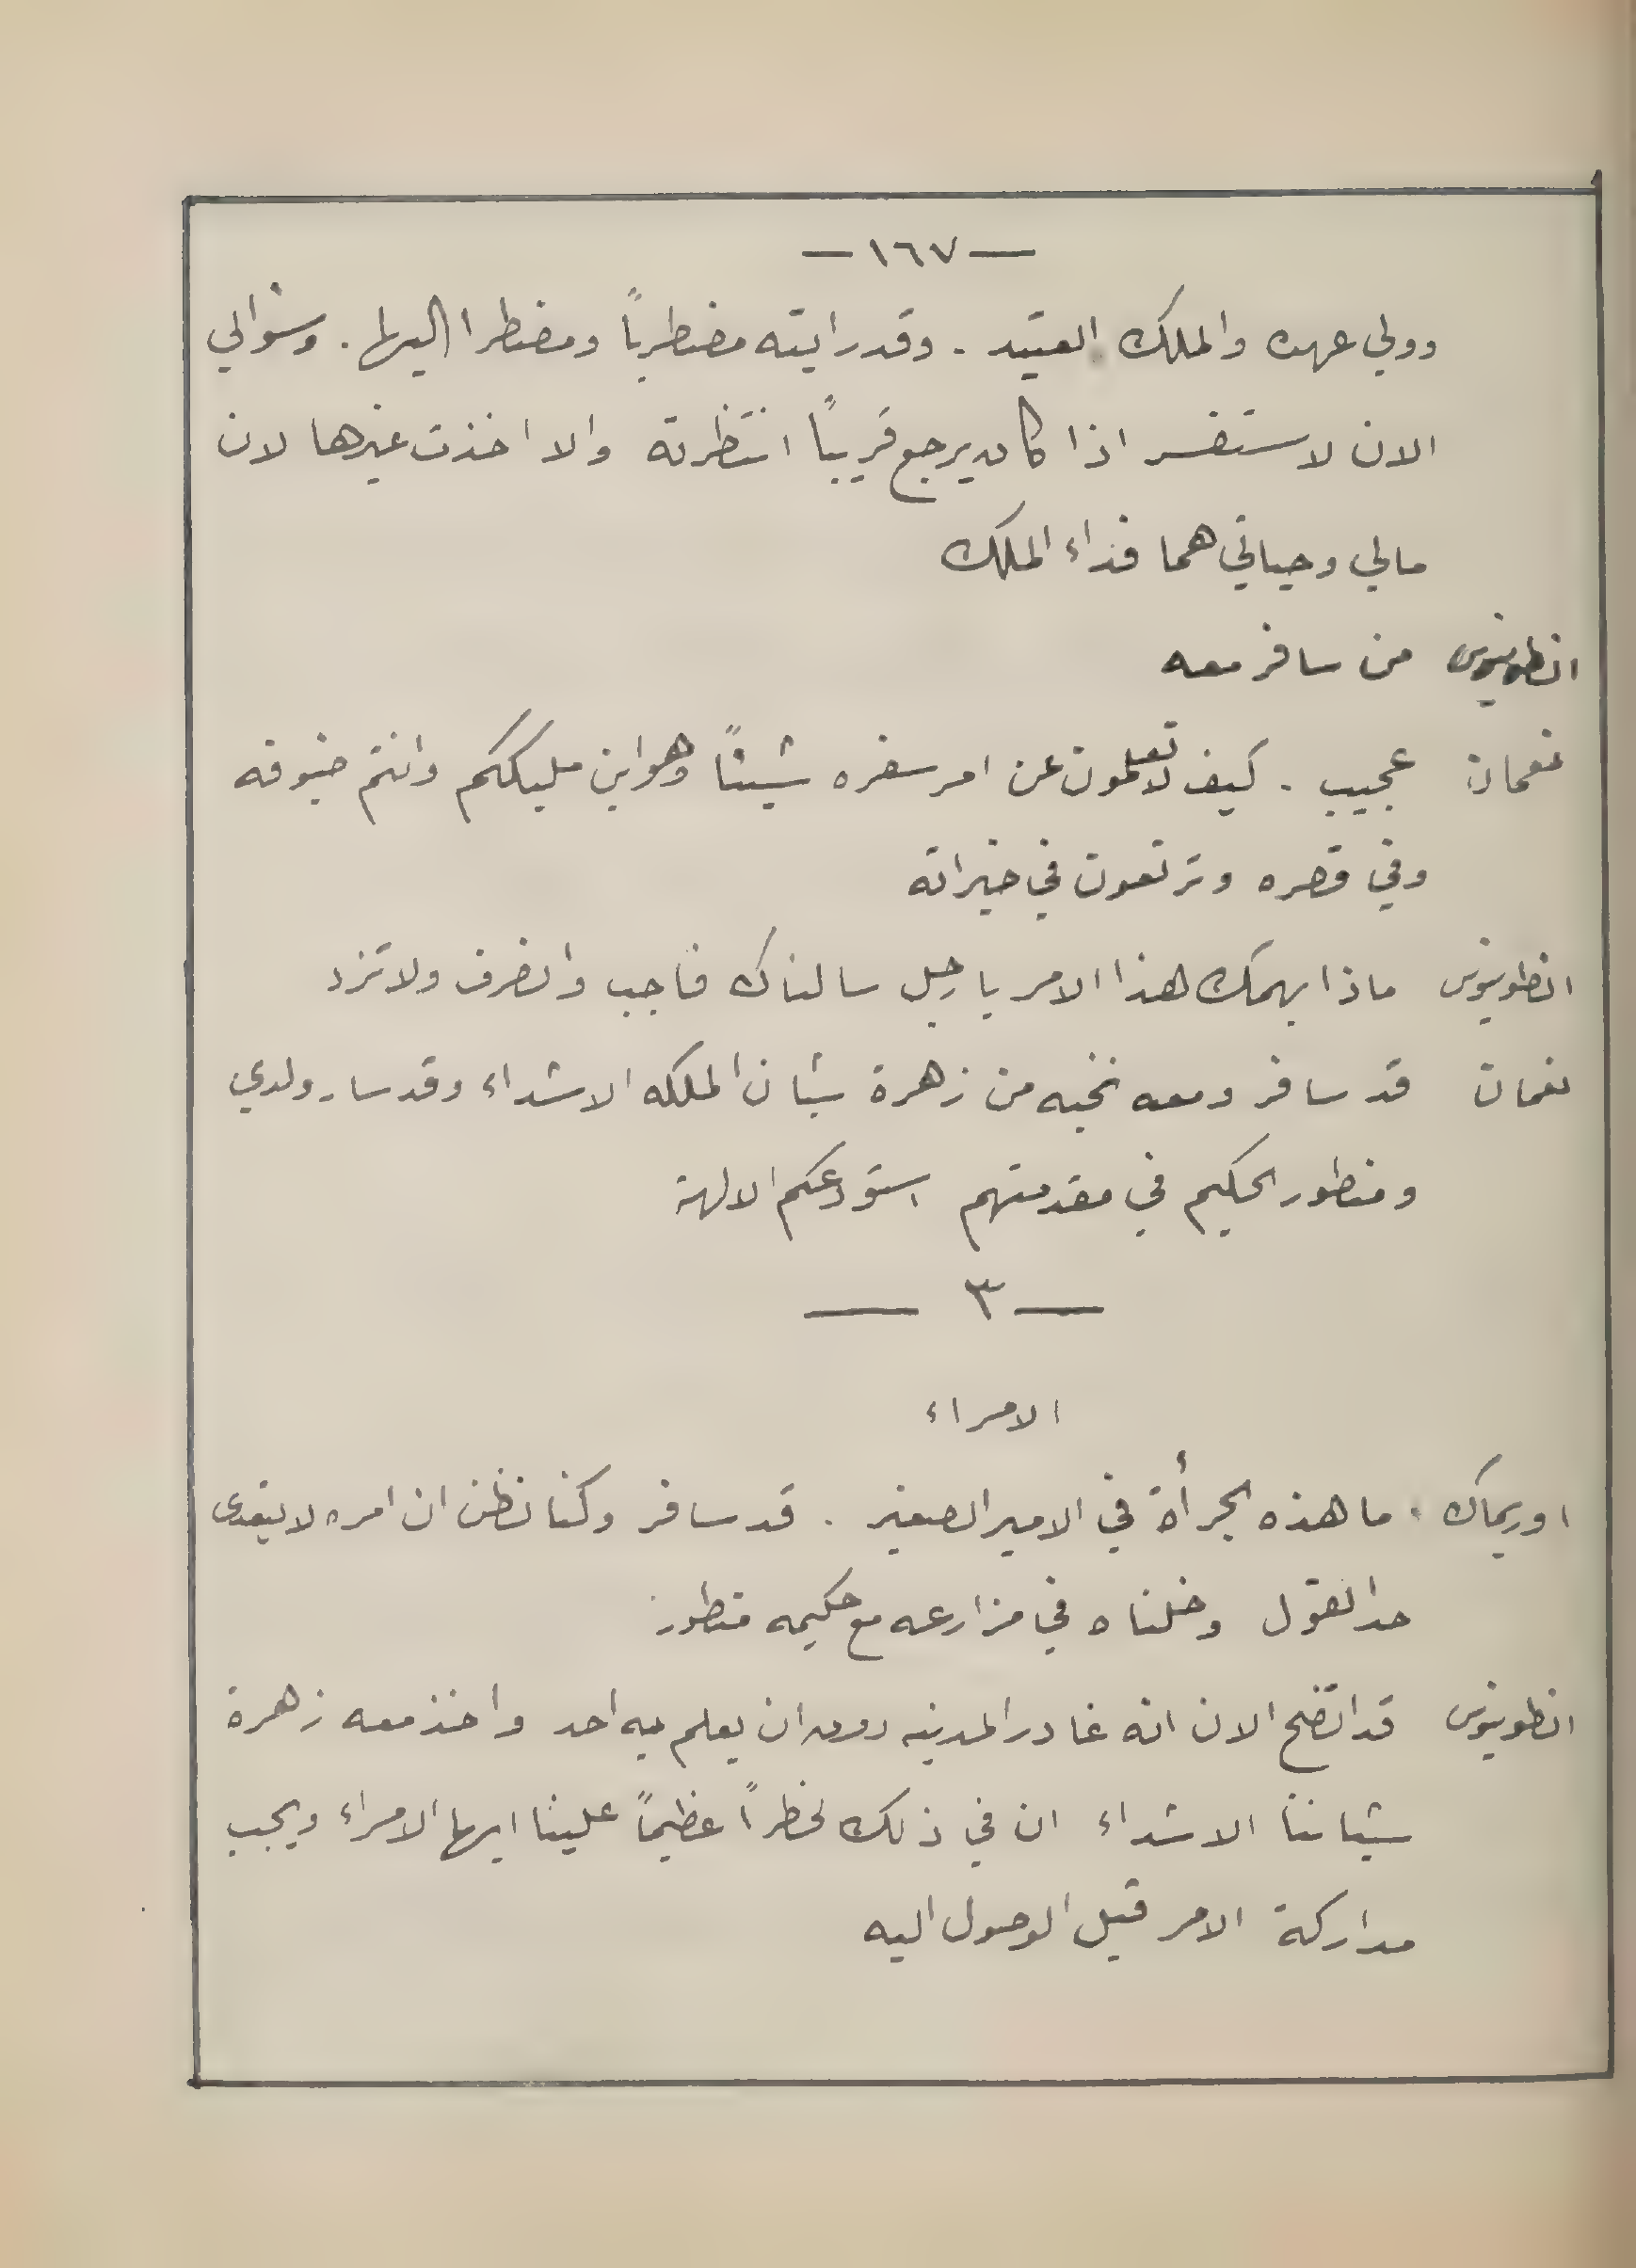 — ١٦٧ —
وولي عهده والملك العتيد . وقد رايته مضطرباً ومضطرا اليها . وسؤالي
الان لاستفسر اذا كان يرجع قريباً انتظرته والا اخذت غيرها لان
مالي وحياتي هما فداء الملك
انطونيوس من سافر معه
نعمان عجيب . كيف لا تعلمون عن امر سفره شيئاً وهو ابن مليككم وانتم ضيوفه
وفي قصره وترتعون في خيراته
انطونيوس ماذا يهمك هذا الامر يا رجل سالناك فاجب وانصرف ولا تزد
نعمان قد سافر ومعه نخبه من زهرة شبان المملكه الاشداء وقد سار ولدي
ومنطور الحكيم في مقدمتهم استودعكم الالهة
— ٣ —
الامراء
اوريماك . ما هذه الجرأة في الامير الصغير . قد سافر وكنا نظن ان امره لا يتعدى
حد القول وخلناه في مزارعه مع حكيمه منطور
انطونيوس قد اتضح الان انه غادر المدينه دون ان يعلم به احد واخذ معه زهرة
شباننا الاشداء ان في ذلك لخطراً عظيماً علينا ايها الامراء ويجب
مداركة الامر قبل الوصول اليه